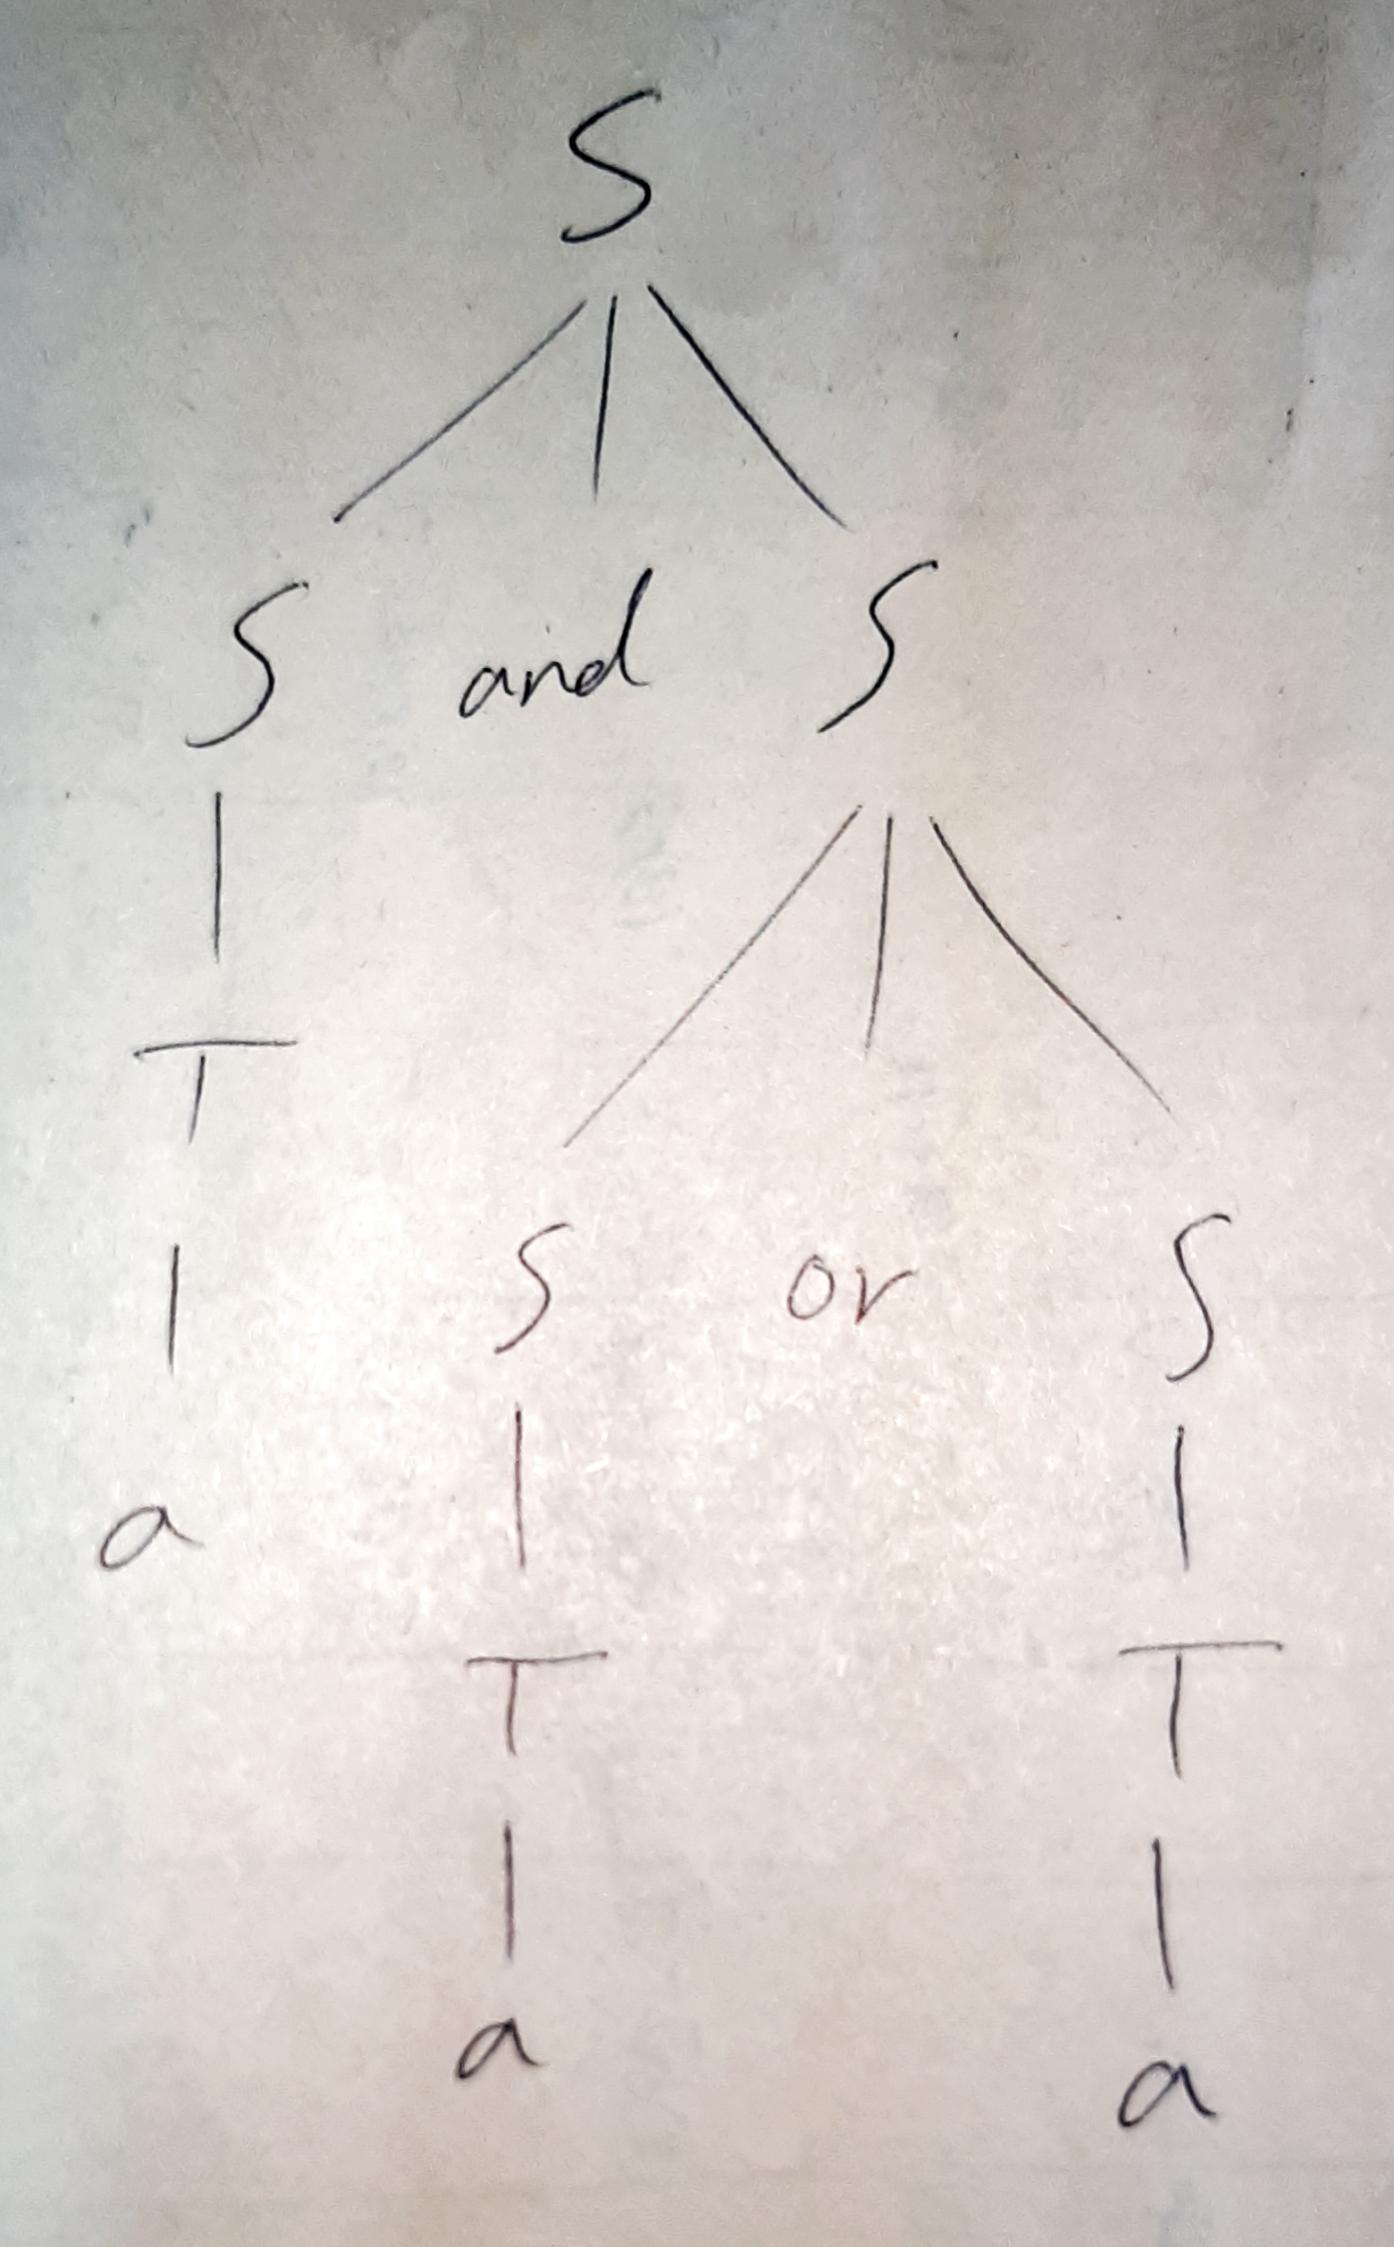 S
S and S
T
S or S
a
T T
a a